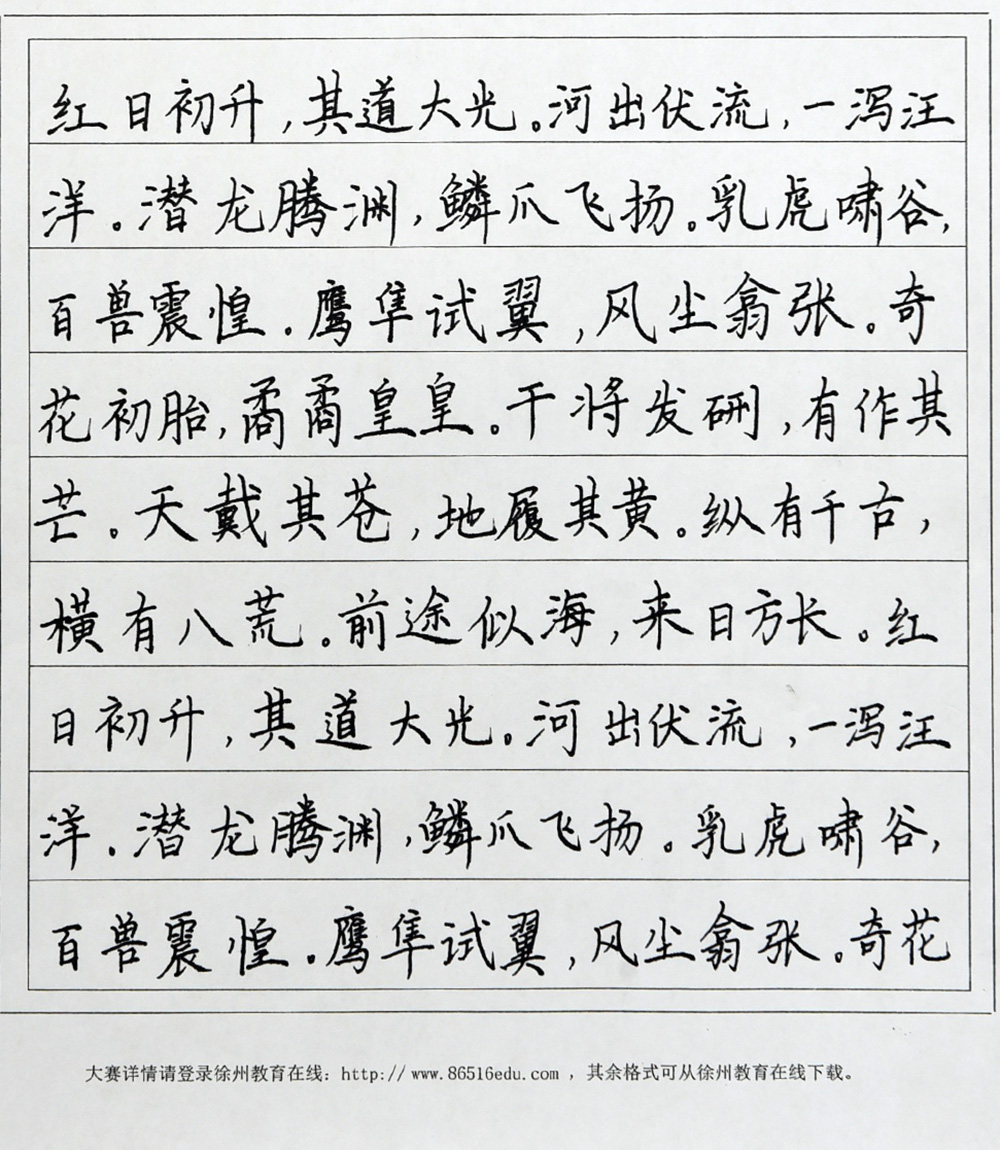 红日初升,其道大光。河出伏流,一泻汪
洋。潜龙腾渊,鳞爪飞扬。乳虎啸谷,
百兽震惶。鹰隼试翼,风尘翕张。奇
花初胎,矞矞皇皇。干将发硎,有作其
芒。天戴其苍,地履其黄。纵有千古,
横有八荒。前途似海,来日方长。红
日初升,其道大光。河出伏流,一泻汪
洋。潜龙腾渊,鳞爪飞扬。乳虎啸谷,
百兽震惶。鹰隼试翼,风尘翕张。奇花
大赛详情请登录徐州教育在线：http://www.86516edu.com ，其余格式可从徐州教育在线下载。